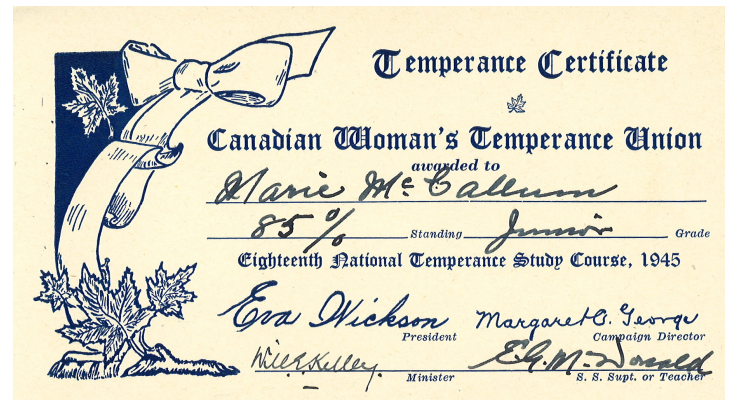 Temperance Certificate
Canadian Woman's Temperance Union
awarded to
Marie McCallum
85% Standing Junior Grade
Eighteenth National Temperance Study Course, 1945
Eva Wickson Margaret C. George
President Campaign Director
Will E. Kelley. E.G. McDonald
Minister S. S. Supt. or Teacher